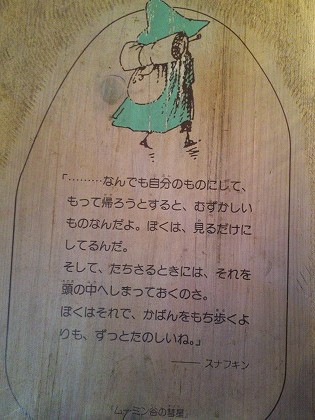 「………なんでも自分のものにして、
もって帰ろうとすると、むずかしい
ものなんだよ。ぼくは、見るだけに
してるんだ。
そして、たちさるときには、それを
頭の中へしまっておくのさ。
ぼくはそれで、かばんをもち歩くよ
りも、ずっとたのしいね。」
―――― スナフキン
「ムーミン谷の彗星」